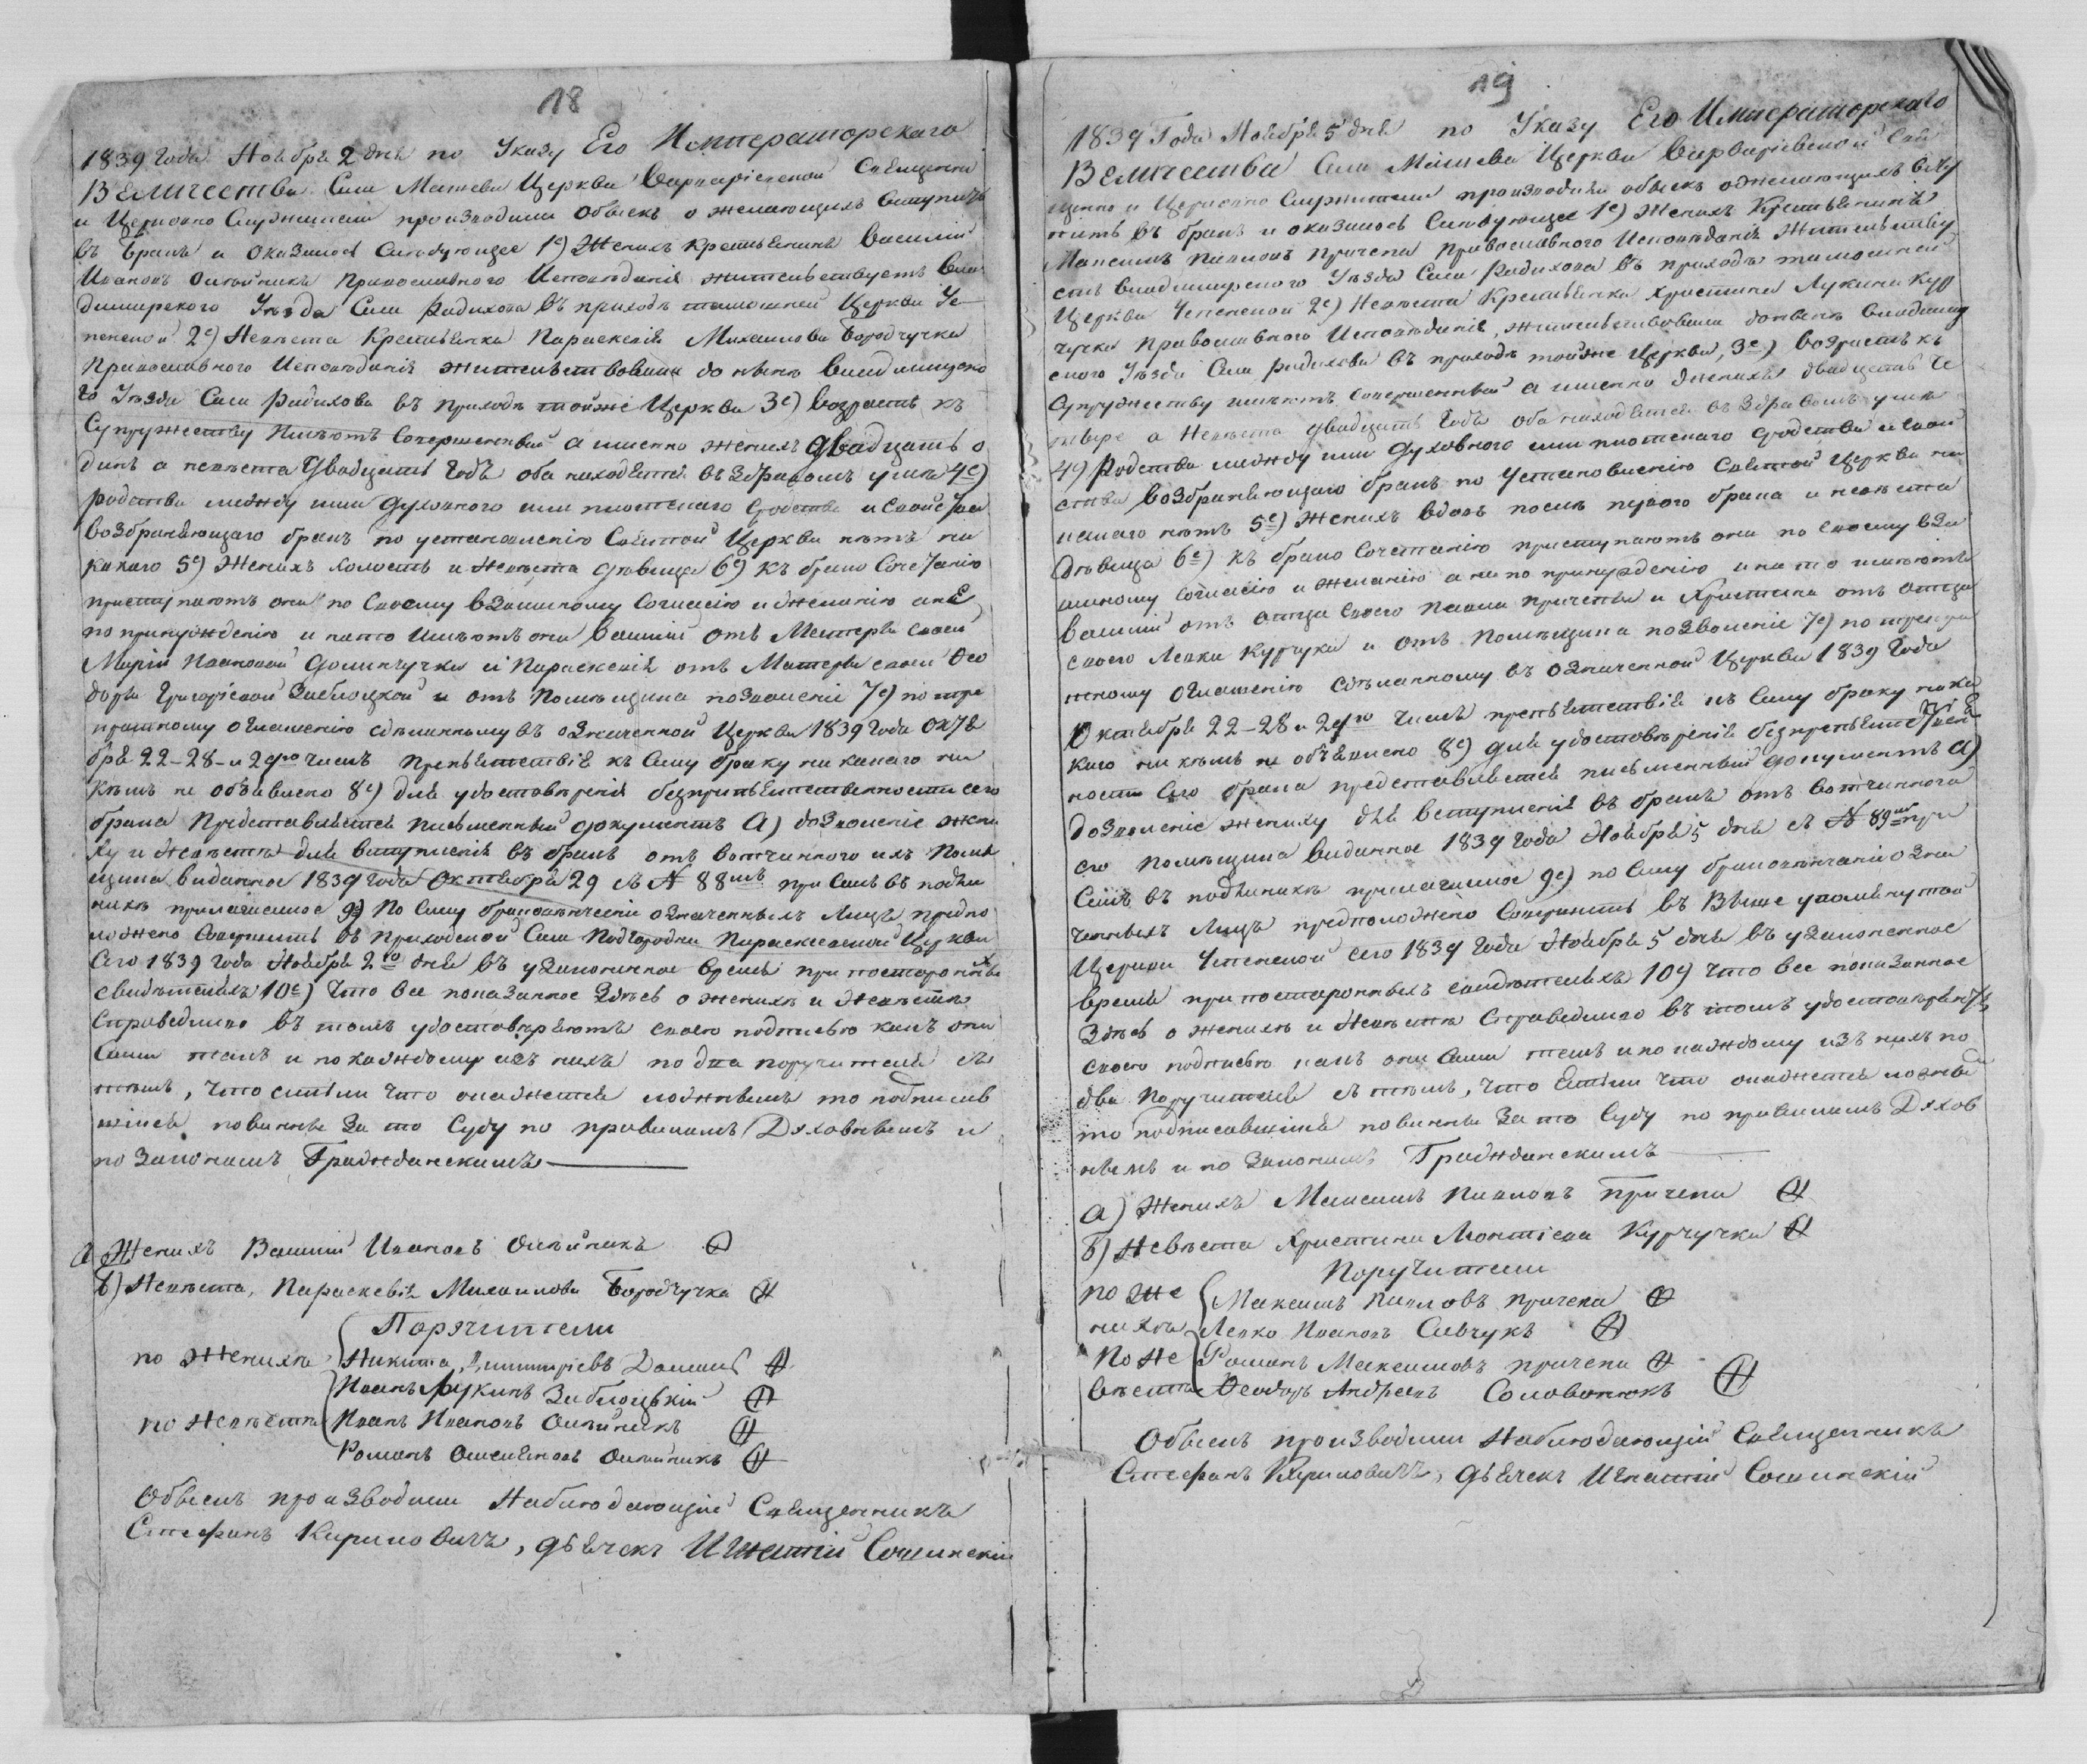 18
1839 Года Ноября 2 дня по Указу Его Императорскаго
Величества Села Машева Церкви Варваріевской Священно
и Церковно Служители производили обыскъ о желающихъ вступить
въ Бракъ и оказалось Слѣдующее 1е) Женихъ Крестьянинъ Василій
Ивановъ Олѣйникъ Православного Исповѣданія жительствуетъ Вла
димирского Уѣзда Села Радихова въ приходѣ тамошней Церкви Ус
пенской 2е) Невѣста Крестьянка Параскевія Михаилова Бородчучка
Православного Исповѣданія жительствовала до нынѣ Владимирско
го Уѣзда Села Радихова въ приходѣ тойже Церкви 3е) Возрастъ къ
Супружеству Имѣютъ Совершенный а именно женихъ двадцать о
динъ а невѣста двадцать годъ оба находятся въ здравомъ умѣ 4е)
родства между ими духовного или плотскаго сродства и свойства
возбраняющаго бракъ по установленію Святой Церкви нѣтъ ни
какого 5е) Женихъ холостъ и Невѣста дѣвица 6е) къ брако Сочетанію
приступаютъ они по Своему взаимному Согласію и Желанію а не
по принужденію и на то имѣютъ они Василій отъ Матеры своей
Маріи Ивановой и Параскевія отъ Матеры своей Ѳео
доры Григоріевой Заблоцкой и отъ Помѣщика позволеніе 7е) по трех
кратному оглашенію сдѣланному въ означенной Церкви 1839 года Октя
бря 22-28-и 29го числъ препятствія къ Сему браку никакого ни
кѣмъ не объявлено 8е) для удостовѣренія безпрепятственности сего
брака Представляется письменный документъ а) дозволеніе жени
ху и Невѣстѣ для вступленія въ бракъ отъ вотчинного ихъ Помѣ
щика виданное 1839 года Октября 29 съ № 88мъ при семъ въ подли
никѣ прилагаемое 9е) По Сему браковѣнчаніе означенныхъ Лицъ предпо
ложено Совершить въ Приходской Села Подгородна Параскевской Церкви
Сего 1839 года Ноября 2го дня въ узаконенное время при постороннихъ
свидѣтеляхъ 10е) Что все показанное Здѣсь о женихѣ и Невѣстѣ
Справедливо въ томъ удостовѣряютъ своею подписью какъ они
Сами такъ и по каждому изъ нихъ по два поручителя съ
тѣмъ, что естьли что окажется ложнымъ то подписав
шіися повинны за то Суду по правиламъ Духовнымъ и
по Законамъ Гражданскимъ
а) Женихъ Василій Ивановъ Олѣйникъ
б) Невѣста, Параскевія Михаилова Бородчучка
Поручители
по Женихѣ Никита Димитріевъ
Иванъ Лукинъ Заблоцький
по Невѣстѣ Иванъ Ивановъ Олѣйникъ
Романъ Олѣйникъ
Обыскъ производили Наблюдающій Священникъ
Стефанъ Кириловичъ, дьячекъ Игнатій Сошинскій
19
1839 Года Ноября 5 дня по Указу Его Императорскаго
Величества Села Машева Церкви Варваріевской Свя
щенно и Церковно Служители производили обыскъ о желающихъ всту
пить въ бракъ и оказалось Слѣдующее 1е) Женихъ Крестьянинъ
Максимъ Павловъ Причепа Православного Исповѣданія Жительству
етъ Владимирского Уѣзда Села Радихова въ приходѣ тамошней
Церкви Успенской 2е) Невѣста Крестьянка Христина Лукина Кур
чучка Православного Исповѣданія, жительствовала до нынѣ Владимир
ского Уѣзда Села Радихова въ приходѣ тойже Церкви, 3е) возрастъ къ
Супружеству имѣютъ совершенный а именно женихъ двадцать че
тыре а Невѣста двадцать годъ оба находятся въ здравомъ умѣ
4е) Родства между ими духовного или плотскаго сродства и свой
ства возбраняющаго бракъ по установленію Святой Церкви ни
какаго нѣтъ 5е) Женихъ вдовъ послѣ первого брака и невѣста
дѣвица 6е) къ брако Сочетанію приступаютъ они по своему вза
имному согласію и желанію а не по принужденію и на то имѣютъ
Василій отъ отца своего Павла Причепы и Христина отъ отца
своего Левки Курчука и отъ Помѣщика позволеніе 7е) по трехкра
тному оглашенію сдѣланному въ означенной Церкви 1839 Года
Октября 22-28 и 29го числъ препятствія къ Сему браку ника
кого ни кѣмъ не объявлено 8е) для удостовѣренія безпрепятствен
ности Сего брака представляется письменный документъ а)
дозволеніе жениху для вступленія въ бракъ отъ вотчинного
его помѣщика виданное 1839 года Ноября 5 дня съ № 89мъ при
Семъ въ подлиникѣ прилагаемое 9е) по Сему браковѣнчаніе озна
ченныхъ Лицъ предположено Совершить въ Выше упомянутой
Церкви Успенской сего 1839 года Ноября 5 дня въ узаконенное
время при постороннихъ свидѣтеляхъ 10е) Что все показанное
Здѣсь о женихѣ и Невѣстѣ Справедливо въ томъ удостовѣряютъ
своею подписью какъ они Сами такъ и по каждому изъ нихъ по
два поручителя съ тѣмъ, что естьли что окажется ложнымъ
то подписавшіися повинны за то Суду по правиламъ Духов
нымъ и по Законамъ Гражданскимъ
а) Женихъ Максимъ Павловъ Причепа
б) Невѣста Христина Курчучка
Поручители
по же Максимъ Павловъ Причепа
нихѣ Левко Ивановъ Савчукъ
по Не Романъ Максимовъ Причепа
вѣстѣ Ѳеодоръ Андреевъ Соловонюкъ
Обыскъ производили Наблюдающій Священникъ
Стефанъ Кириловичъ, дьячекъ Игнатій Сошинскій